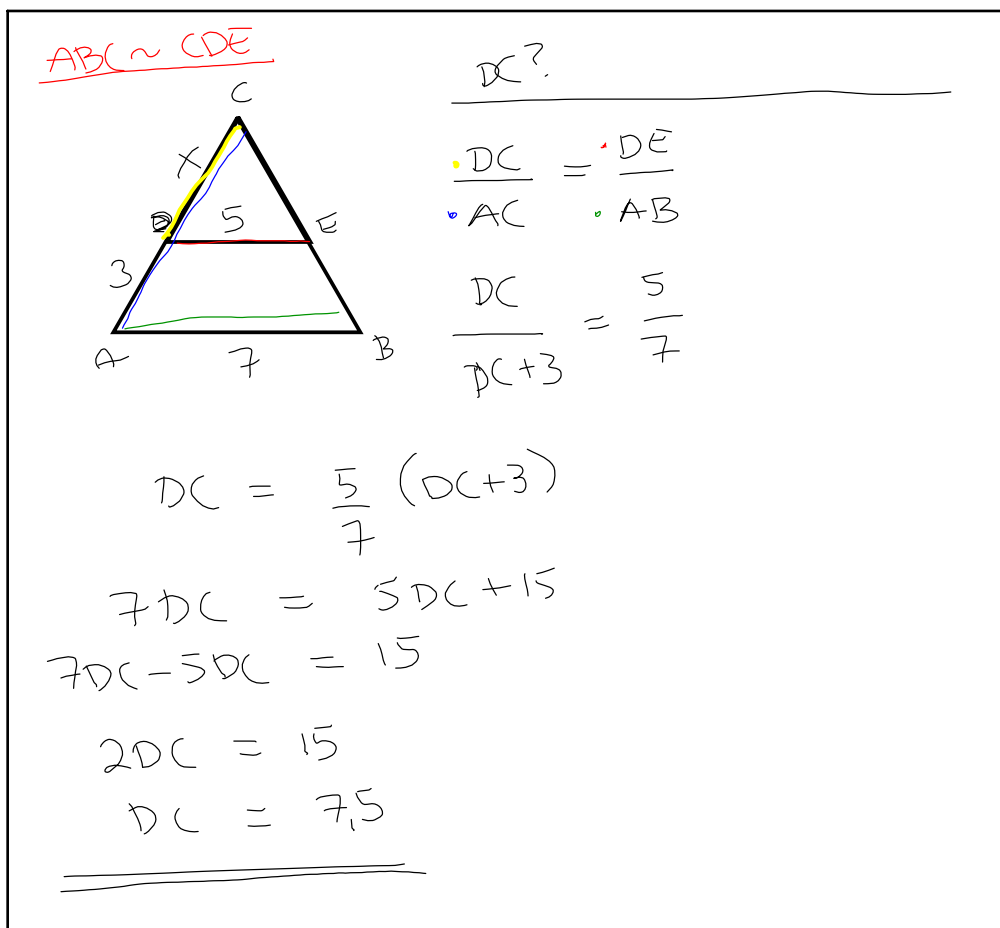 ABC ~ CDE
DC?
C
X
D 5 E
3
A 7 B
DC/AC = DE/AB
DC/DC+3 = 5/7
DC = 5/7 (DC+3)
7DC = 5DC+15
7DC-5DC = 15
2DC = 15
DC = 7,5